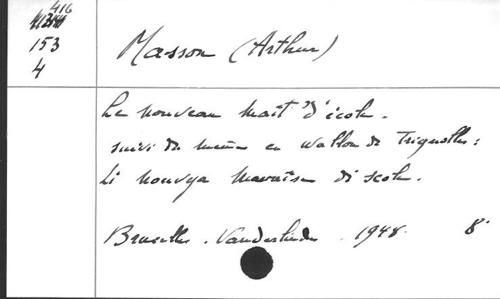 416
153
4
Masson (Arthur)
Le nouveau mait' d'école.
suivi du même en wallon de Trignolles:
Li nouvya di scole.
Bruxelles. Vanderlinden. 1948. 8°